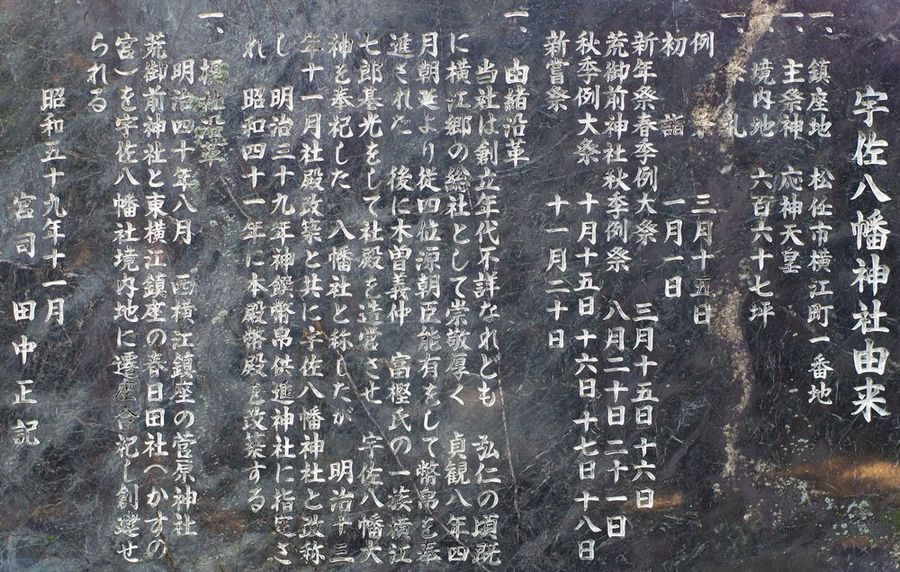 宇佐八幡神社由来
一、鎮座地 松任市横江町一番地
一、主祭神 応神天皇
一、境内地 六百六十七坪
一、 礼
例 三月十五日
初詣 一月一日
新年祭春季例大祭 三月十五日十六日
荒御前神社秋季例祭 八月二十日二十一日
秋季例大祭 十月十五日十六日十七日十八日
新嘗祭 十一月二十日
一、由緒沿革
当社は創立年代不詳なれども 弘仁の頃既
に横江郷の総社として崇敬厚く 貞観八年四
月朝廷より従四位源朝臣能有をして幣帛を奉
進された 後に木曽義仲 富樫氏の一族横江
七郎基光をして社殿を造営させ 宇佐八幡大
神を奉祀した 八幡社と称したが 明治十三
年十一月社殿改築と共に宇佐八幡神社と改称
し 明治三十九年神饌幣帛供進神社に指定さ
れ 昭和四十一年に本殿幣殿を改築する
一、摂社沿革
明治四十年八月 西横江鎮座の菅原神社
荒御前神社と東横江鎮座の春日田社(かすの
宮)を宇佐八幡社境内地に遷座合祀し創建せ
られる
昭和五十九年十一月
宮司 田中正記